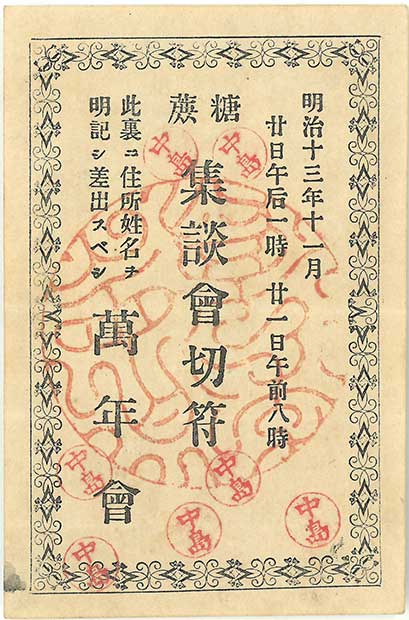 明治十三年十一月
廿日午后一時 廿一日午前八時
糖蔗
集談會切符
此裏ニ住所姓名ヲ
明記シ差出スベシ
萬年會
中島
中島
中島
中島
中島
中島
中島